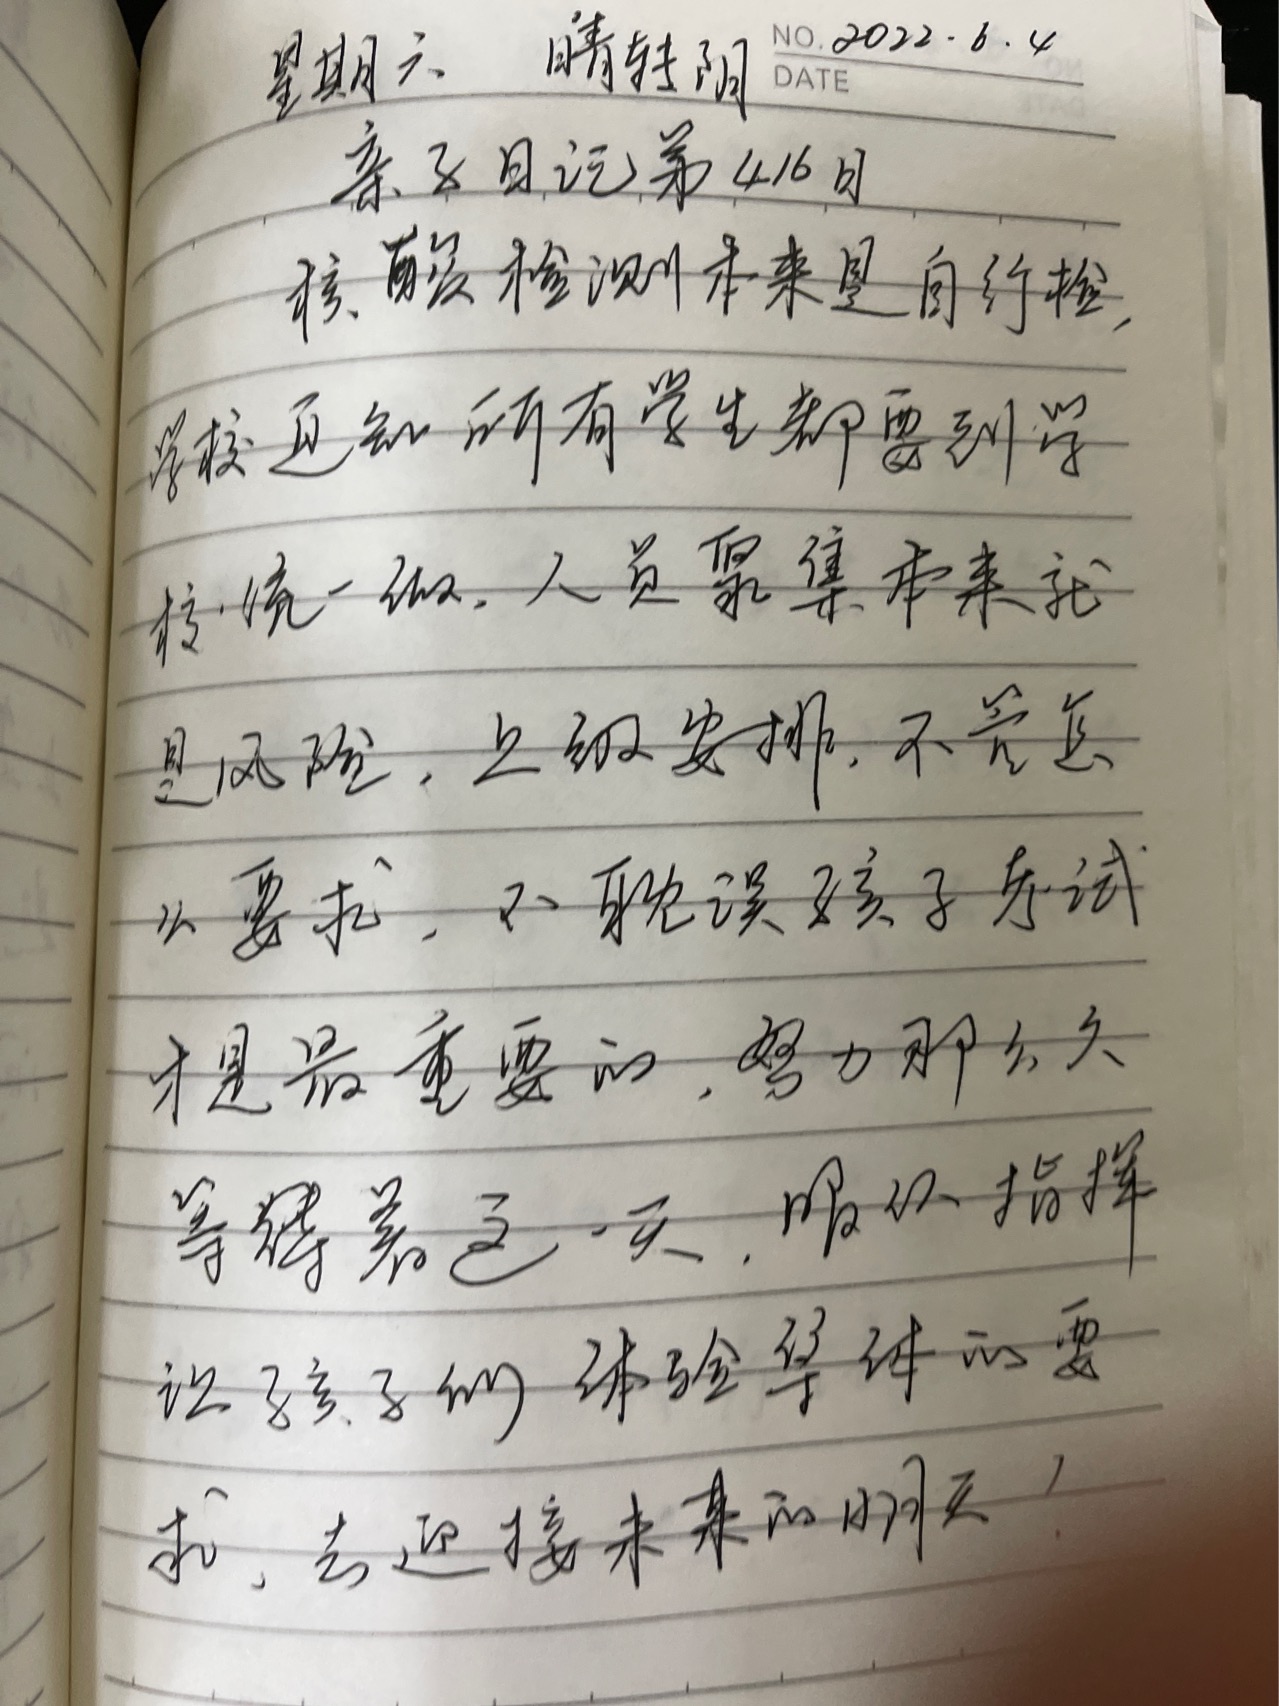 星期六 晴转阴 NO. 2022.6.4
DATE
亲子日记第416日
核酸检测本来是自行检,
学校通知所有学生都要到学
校统一做.人员聚集本来就
是风险,上级安排.不管怎
么要求,不耽误孩子考试
才是最重要的,努力那么久
等待着这一天,服从指挥
让孩子们体验集体的要
求,去迎接未来的明天!